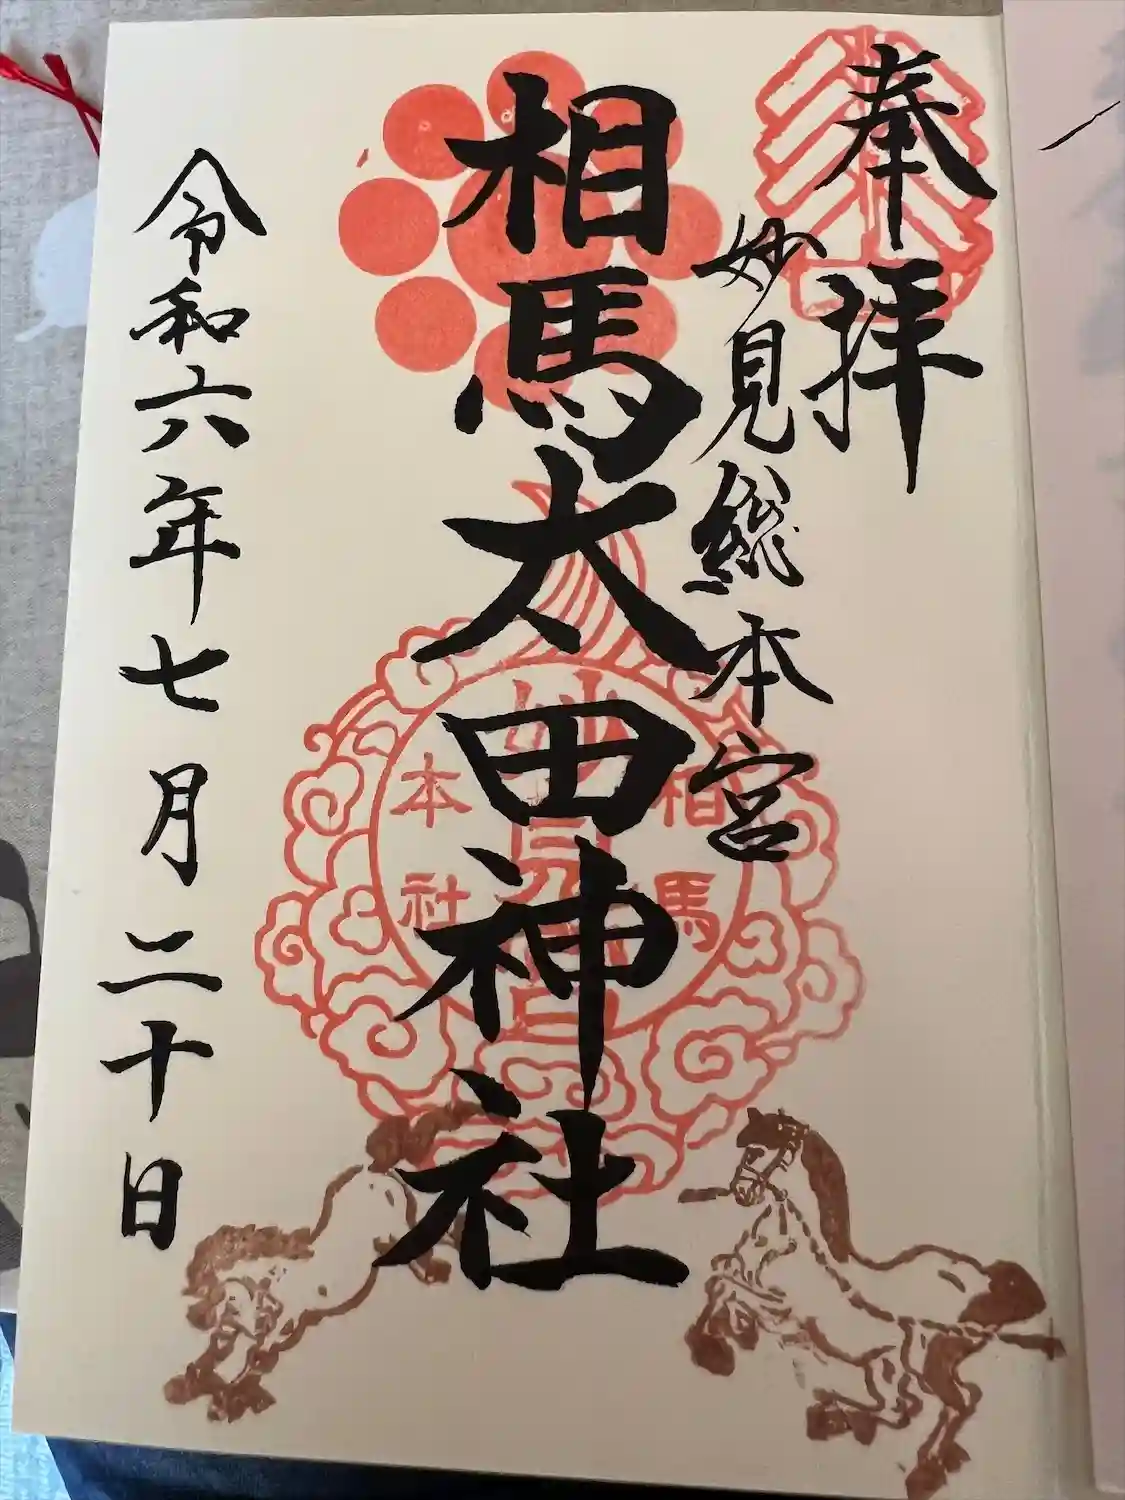 奉拝
妙見総本宮
相馬太田神社
相馬
妙見宮
本社
令和六年七月二十日